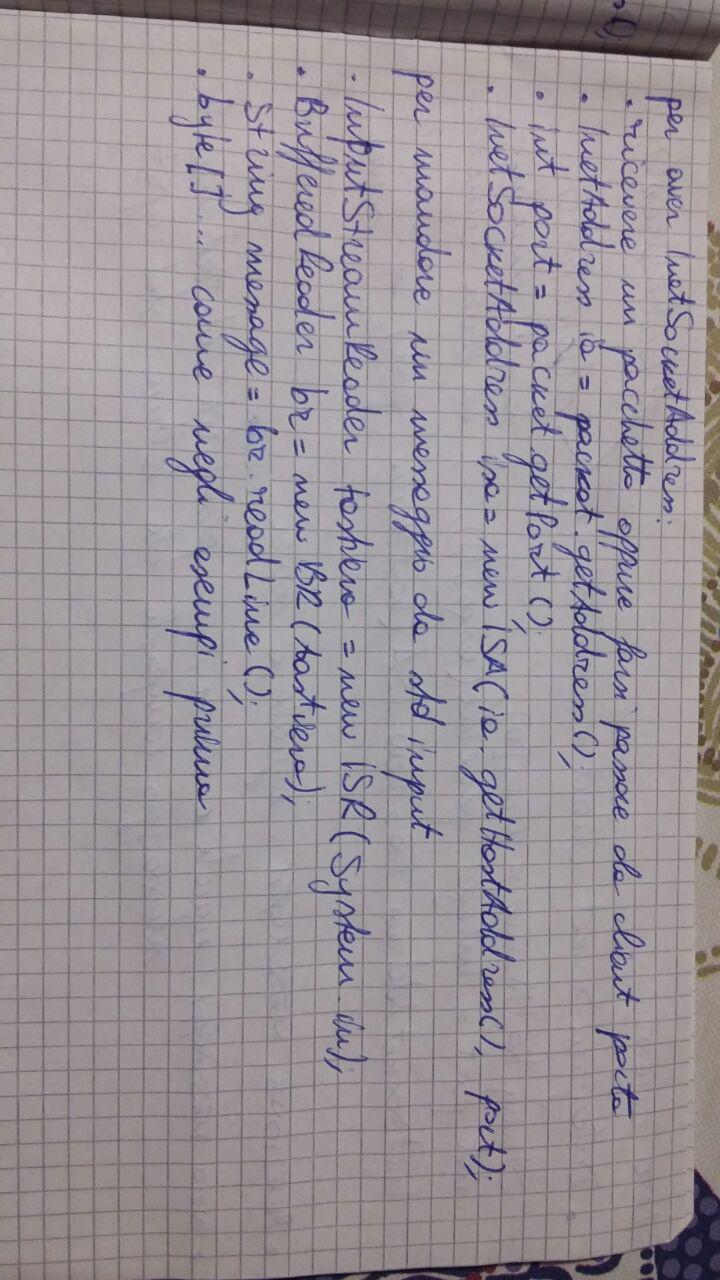 per aver InetSocketAddress:
• ricevere un pacchetto oppure farsi passare da client porta
• InetAddress ia = packet.getAddress();
• int port = packet.getPort();
• InetSocketAddress isa = new ISA(ia.getHostAddress(), port);
per mandare un messaggio da std input
• InputStreamReader tastiera = new ISR(System.in);
• BufferedReader br = new BR(tastiera);
• String message = br.readLine();
• byte[] ... come negli esempi prima